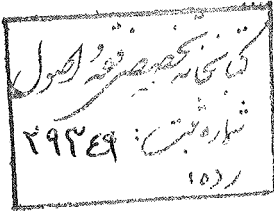 کتابخانه تخصصی فقه و اصول
شماره ثبت: ۲۹۳۴۹